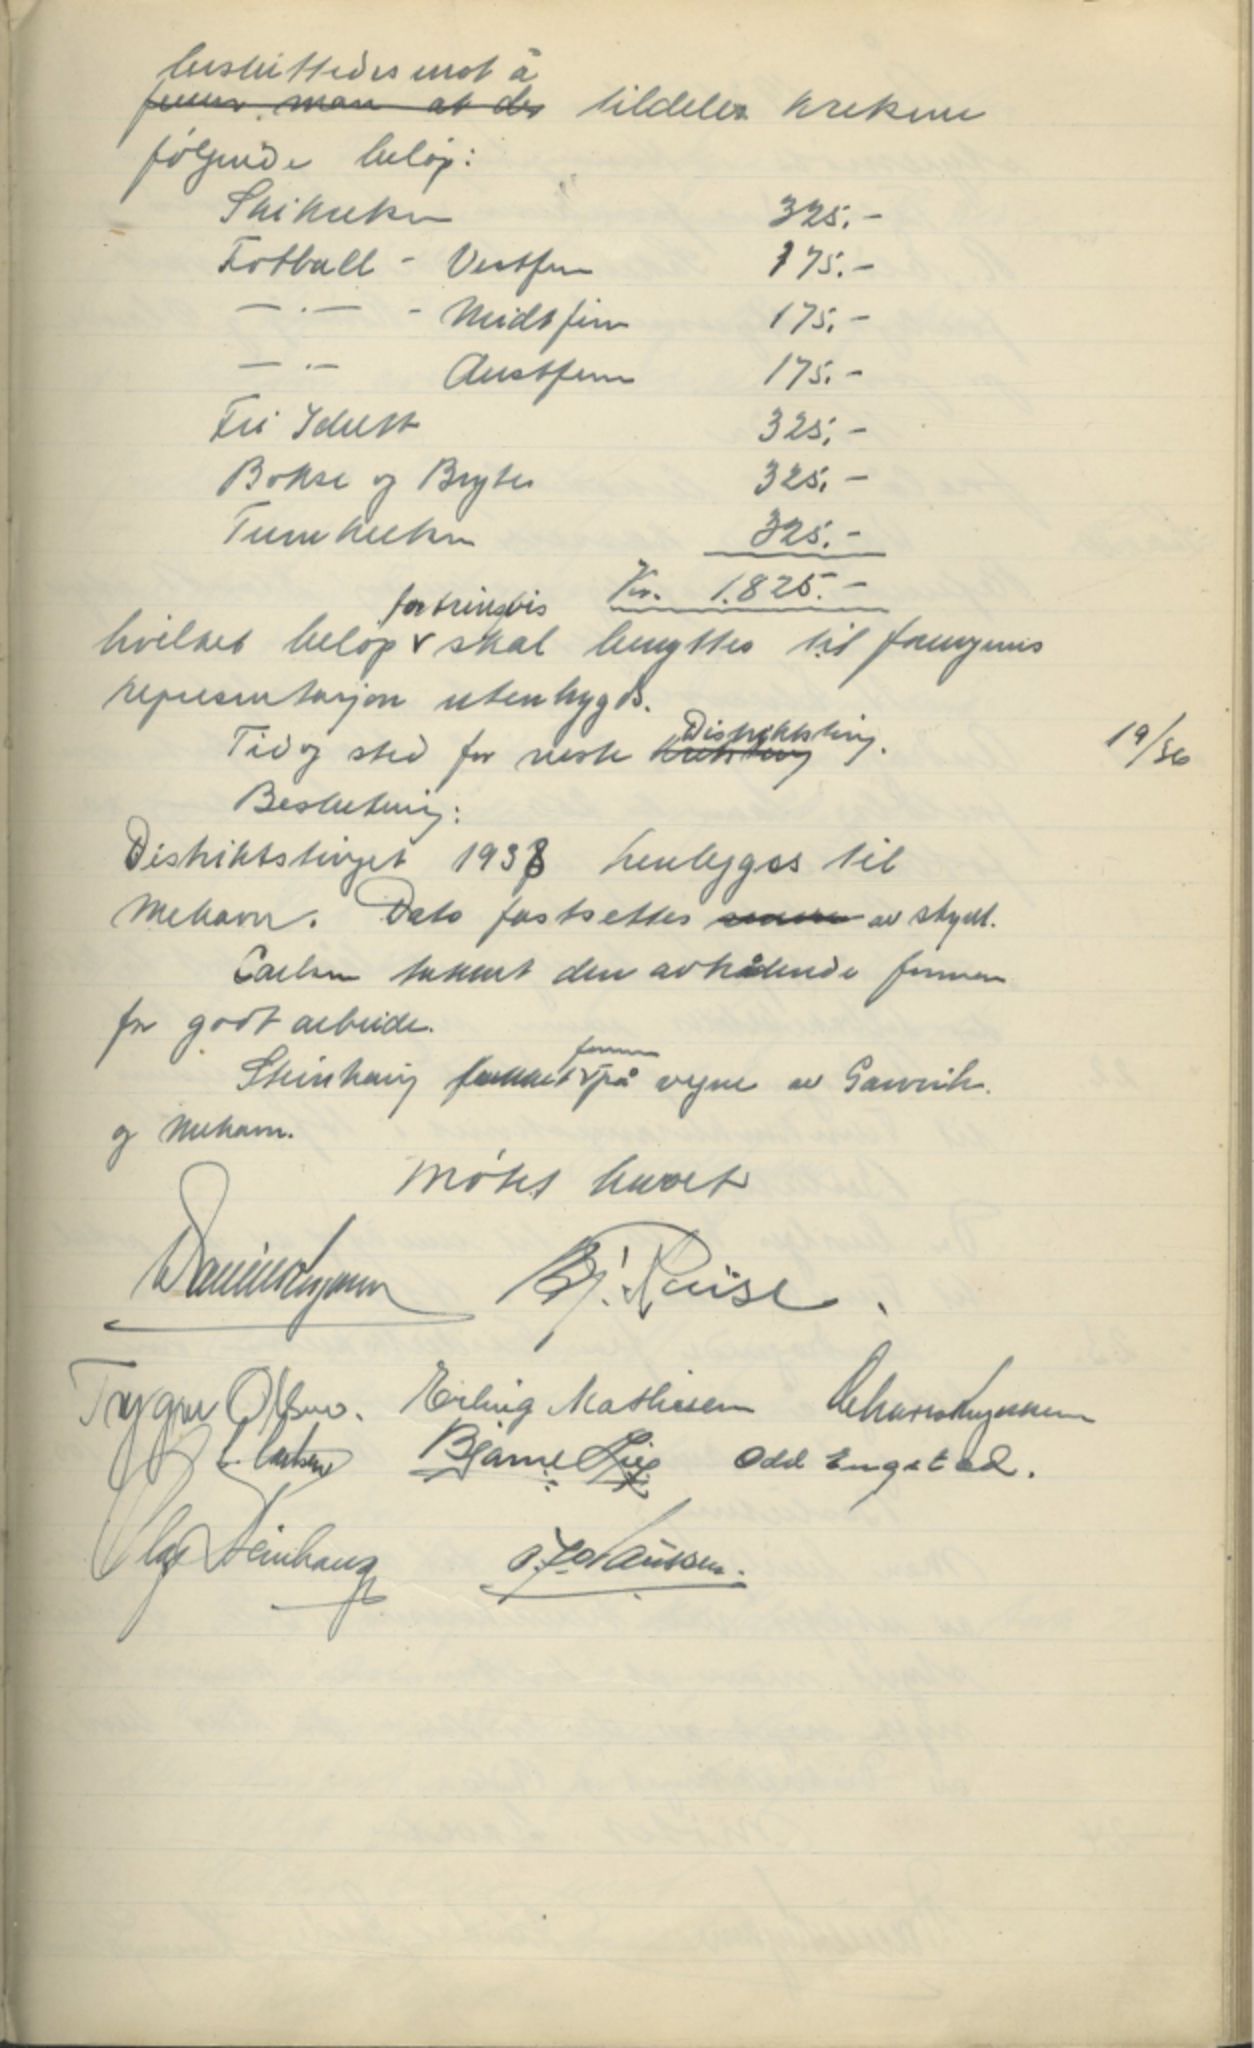 besluttedes mot å
finner man at der tildeles kretsene
følgende beløp:
Skikretsen 325.-
Fotball - Vestfinn 175.-
-.- - Midtfinn 175.-
-.- Austfinn 175.-
Fri Idrett 325.-
Bokse og Bryte 325.-
Turnkretsen 325.-
Kr. 1.825.-
fortrinsvis
hvilket beløp skal benyttes til
representasjon utenbygds.
Distriktsting.
Tid og sted for neste kretsting 19/36
Beslutning:
Distriktstinget 1938 henlegges til
Mehavn. Dato fastsettes av styret.
Carlsen takket den avtrådende formann
for godt arbeide.
formann
Steinhaug takket på vegne av Gamvik
og Mehavn.
Møtet hevet
Bj. Ruise.
Trygve Olsen. Erling Mathisen
Carlsen Bjarne Lie Odd Engstad.
Olaf Steinhaug